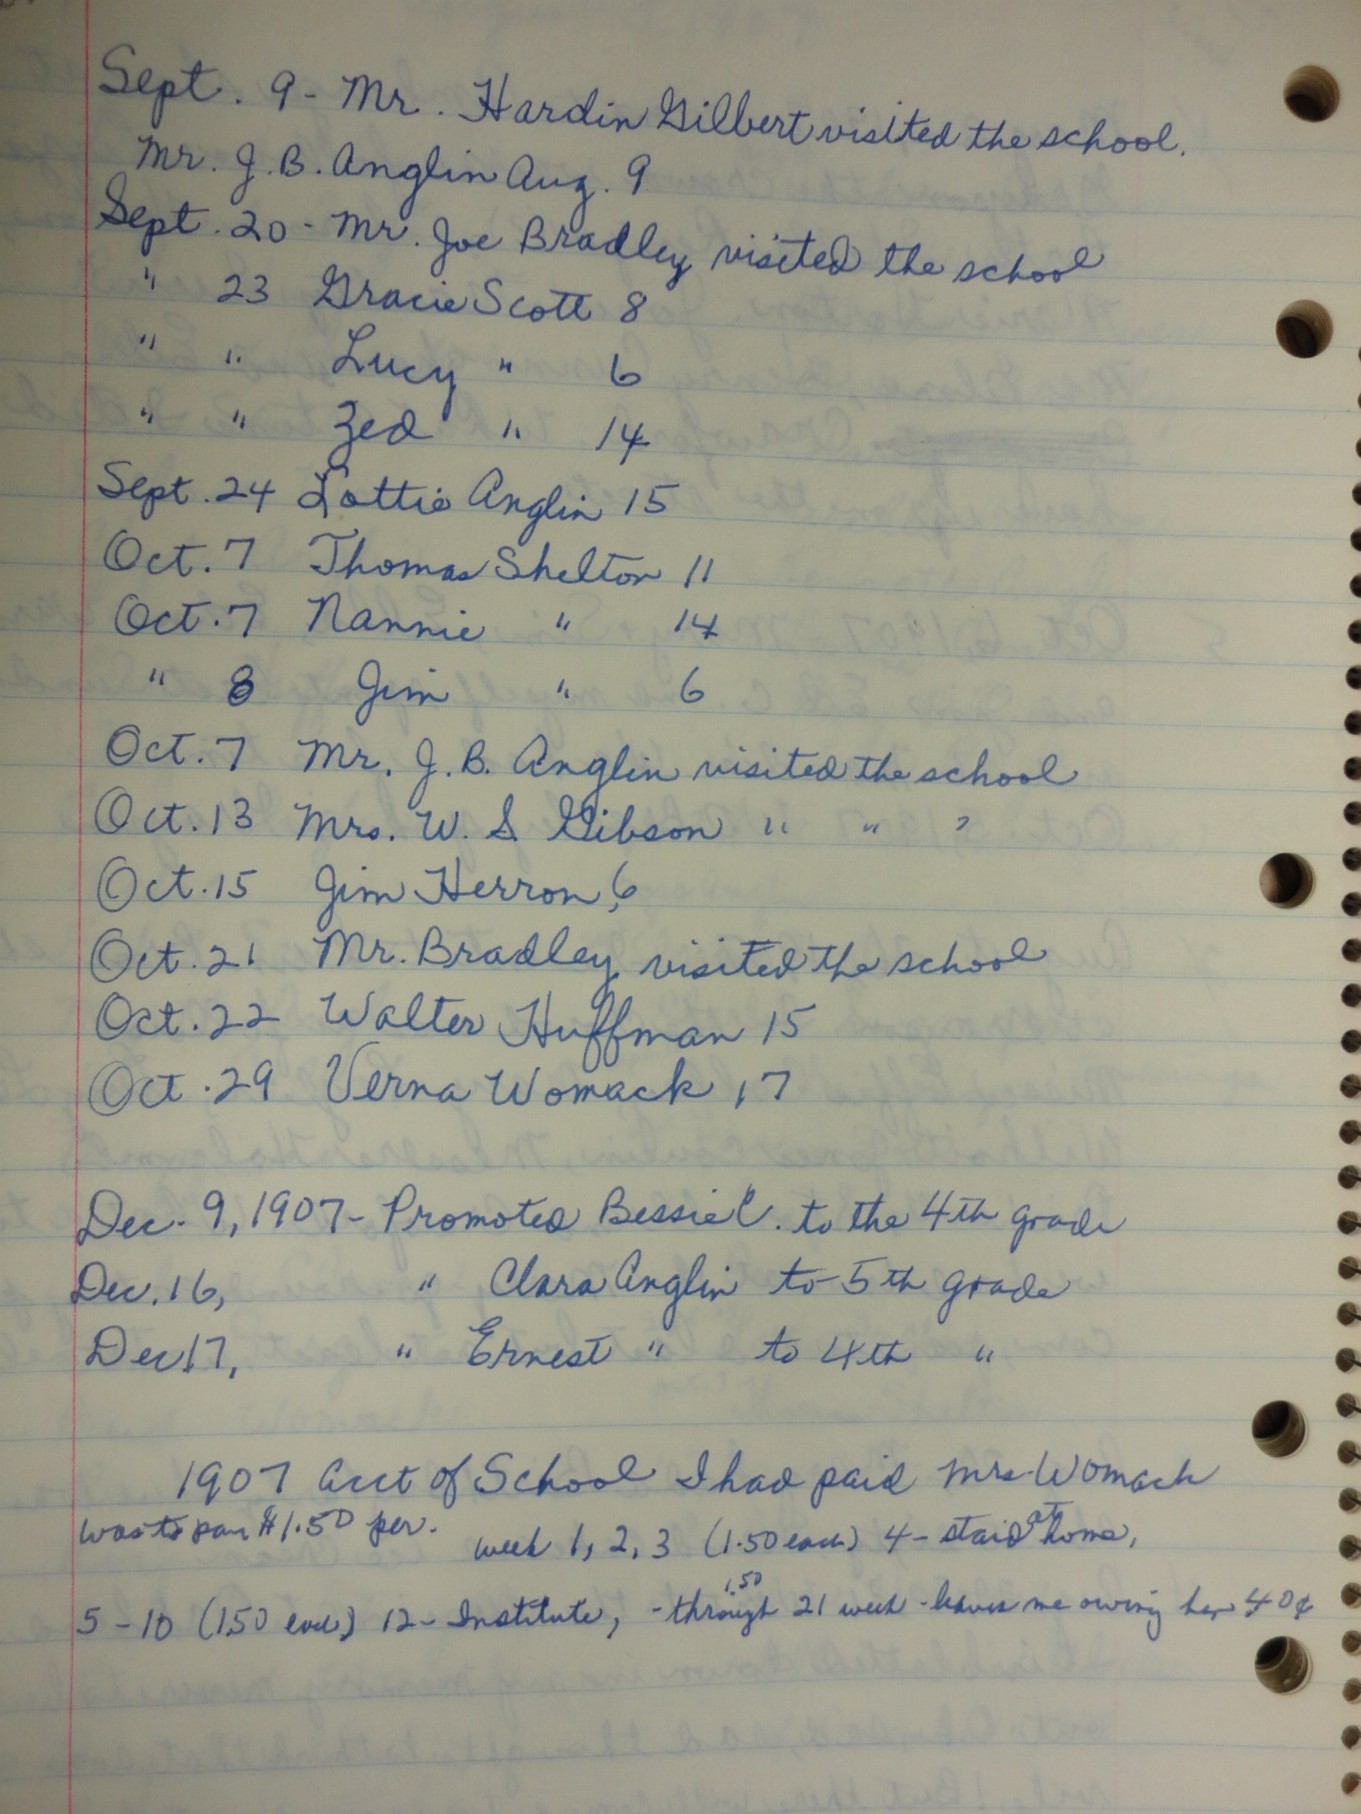 Sept. 9 - Mr. Hardin Gilbert visited the school.
Mr. J. B. Anglin Aug. 9
Sept. 20 - Mr. Joe Bradley visited the school
" 23 Gracie Scott 8
" " Lucy " 6
" " Zed " 14
Sept. 24 Lottie Anglin 15
Oct. 7 Thomas Shelton 11
Oct. 7 Nannie " 14
" 8 Jim " 6
Oct. 7 Mr. J. B. Anglin visited the school
Oct. 13 Mrs. W. S Gibson " " "
Oct. 15 Jim Herron, 6
Oct. 21 Mr. Bradley visited the school
Oct. 22 Walter Huffman 15
Oct. 29 Verna Womack 17
Dec. 9, 1907 - Promoted Bessie C. to the 4th grade
Dec. 16, " Clara Anglin to 5th grade
Dec 17, " Ernest " to 4th "
1907 acct of School I had paid Mrs Womack
was to pay $1.50 per. week 1, 2, 3 (1.50 each) 4 - staid at home,
5 - 10 (1.50 each) 12 - Institute, - through 1.50 21 week - leaves me owing her 40¢